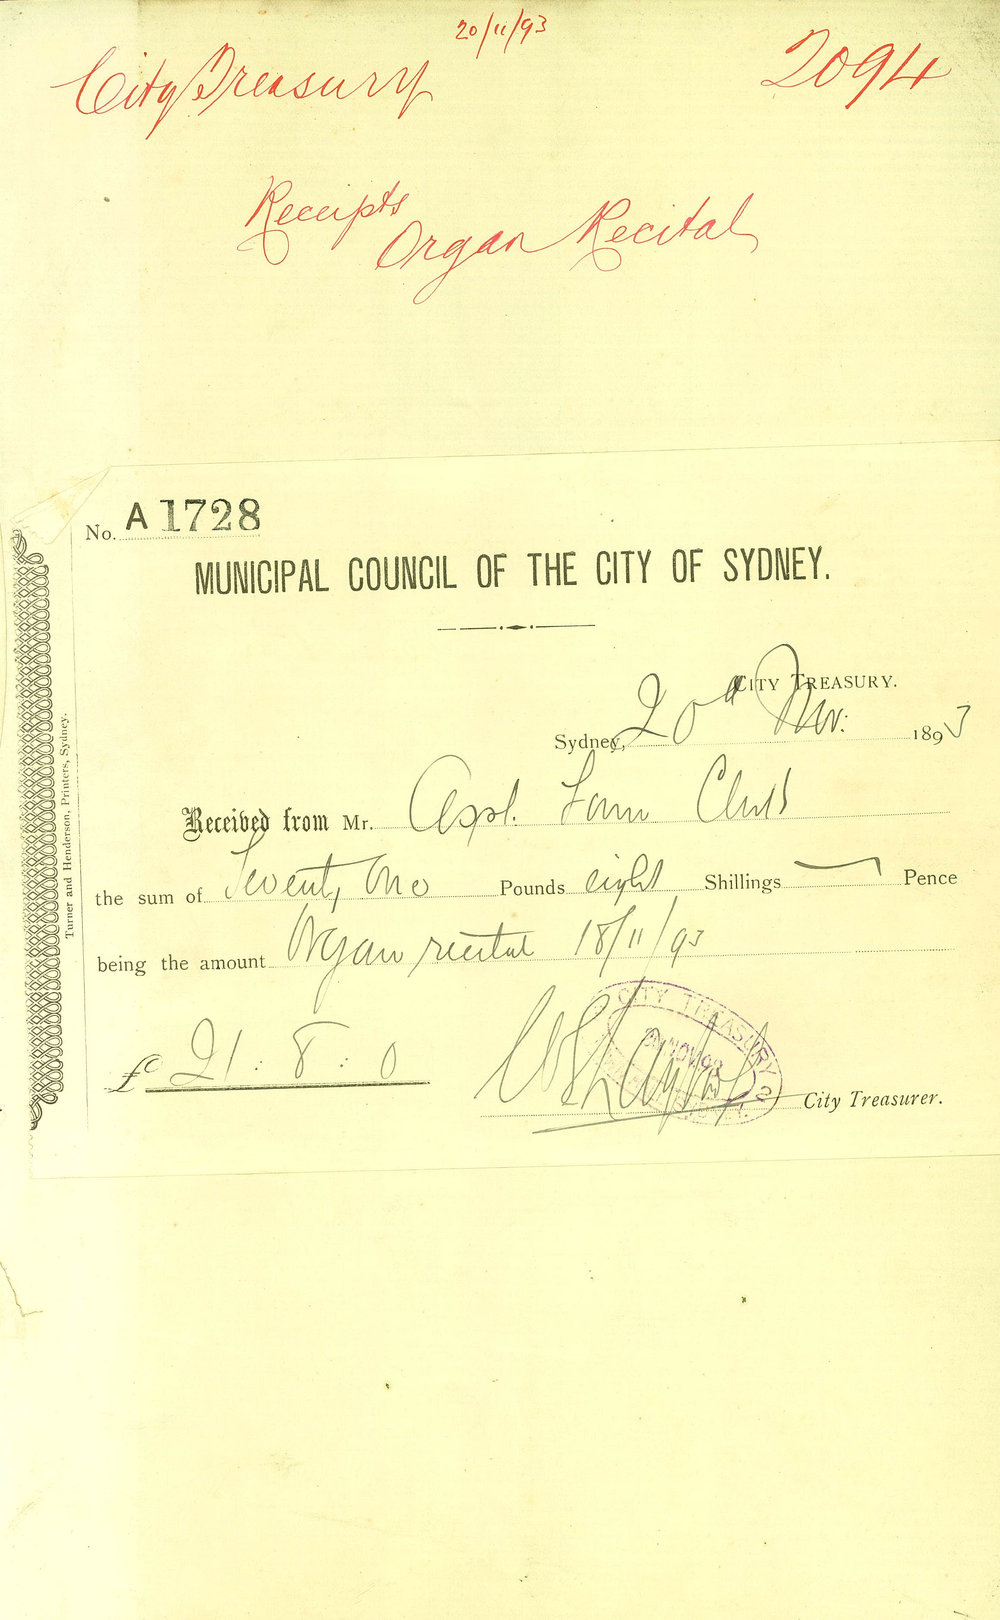 20/11/93
City Treasury
2094
Receipts
Organ Recital
No. A 1728
MUNICIPAL COUNCIL OF THE CITY OF SYDNEY.
CITY TREASURY.
Sydney, 20th Nov: 1893
Received from Mr. Town Clerk
the sum of Seventy One Pounds eight Shillings — Pence
being the amount Organ recital 18/11/93
£ 21 : 8 : 0
CITY TREASURY
NOV. 93
City Treasurer.
Turner and Henderson, Printers, Sydney.